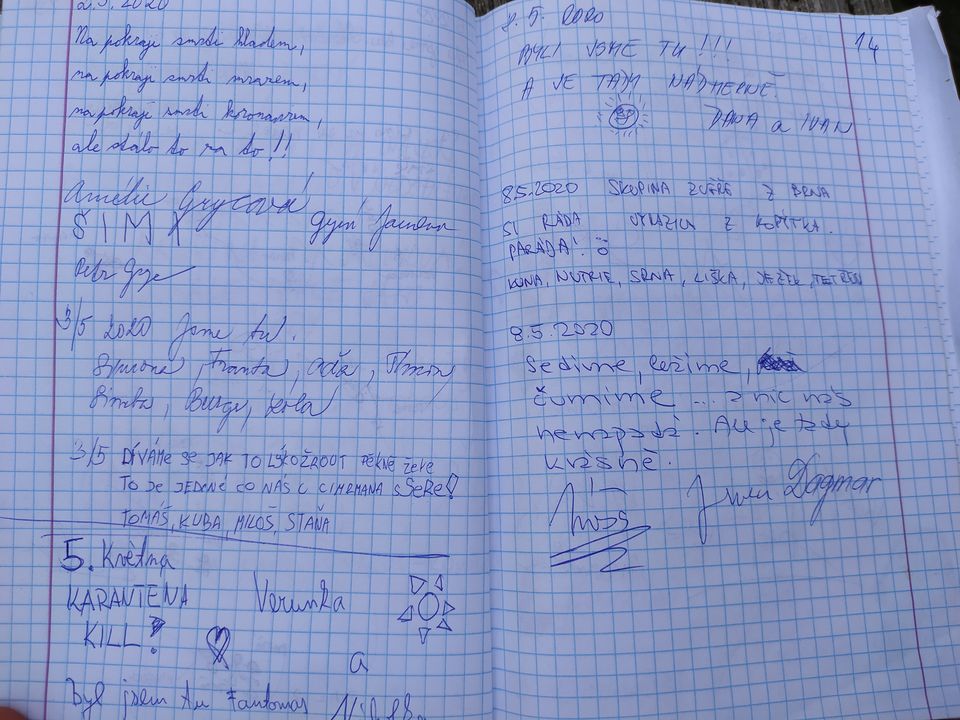 2.5.2020
Na pokraji smrti hladem,
na pokraji smrti mrazem,
na pokraji smrti koronavirem,
ale stálo to za to!!
Amélie Grycová
ŠIMI
Petr
3/5 2020 Jsme tu.
Simona, Franta, Oďa,
Simba,
3/5 DÍVÁME SE JAK TO PĚKNĚ ŽERE
TO JE JEDINÉ CO NÁS U CIMRMANA SSERE!
TOMÁŠ, KUBA, MILOŠ, STAŇA
5. Května
KARANTENA Verunka
KILL?
a
Byl jsem tu Fantomas
8.5.2020
14
BYLI JSME TU!!!
A JE TADY NÁDHERNĚ.
DANA a IVAN
8.5.2020 SKUPINA ZVÍŘE Z BRNA
SI RÁDA Z KOPÍTKA.
PARÁDA! Ö
KUNA, NUTRIE, SRNA, LIŠKA, JEŽEK, TETŘEV
8.5.2020
Sedíme, ležíme,
čumíme ... a nic nás
nenapadá. Ale je tady
krásně.
Dagmar